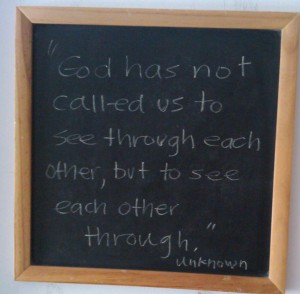 "God has not
called us to
see through each
other, but to see
each other
through."
unknown